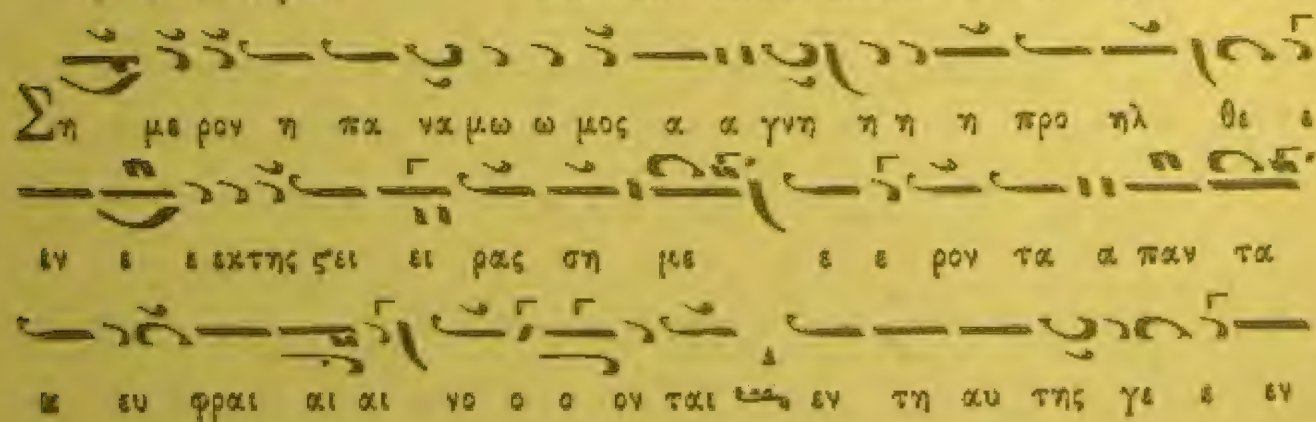 Ση με ρον η πα να μω ω μος α α γνη η η η προ ηλ θε ε
εν ε ε εκ της ςει ει ρας ση με ε ε ρον τα α παν τα
ευ φραι αι αι νο ο ο ον ται εν τη αυ της γε ε εν